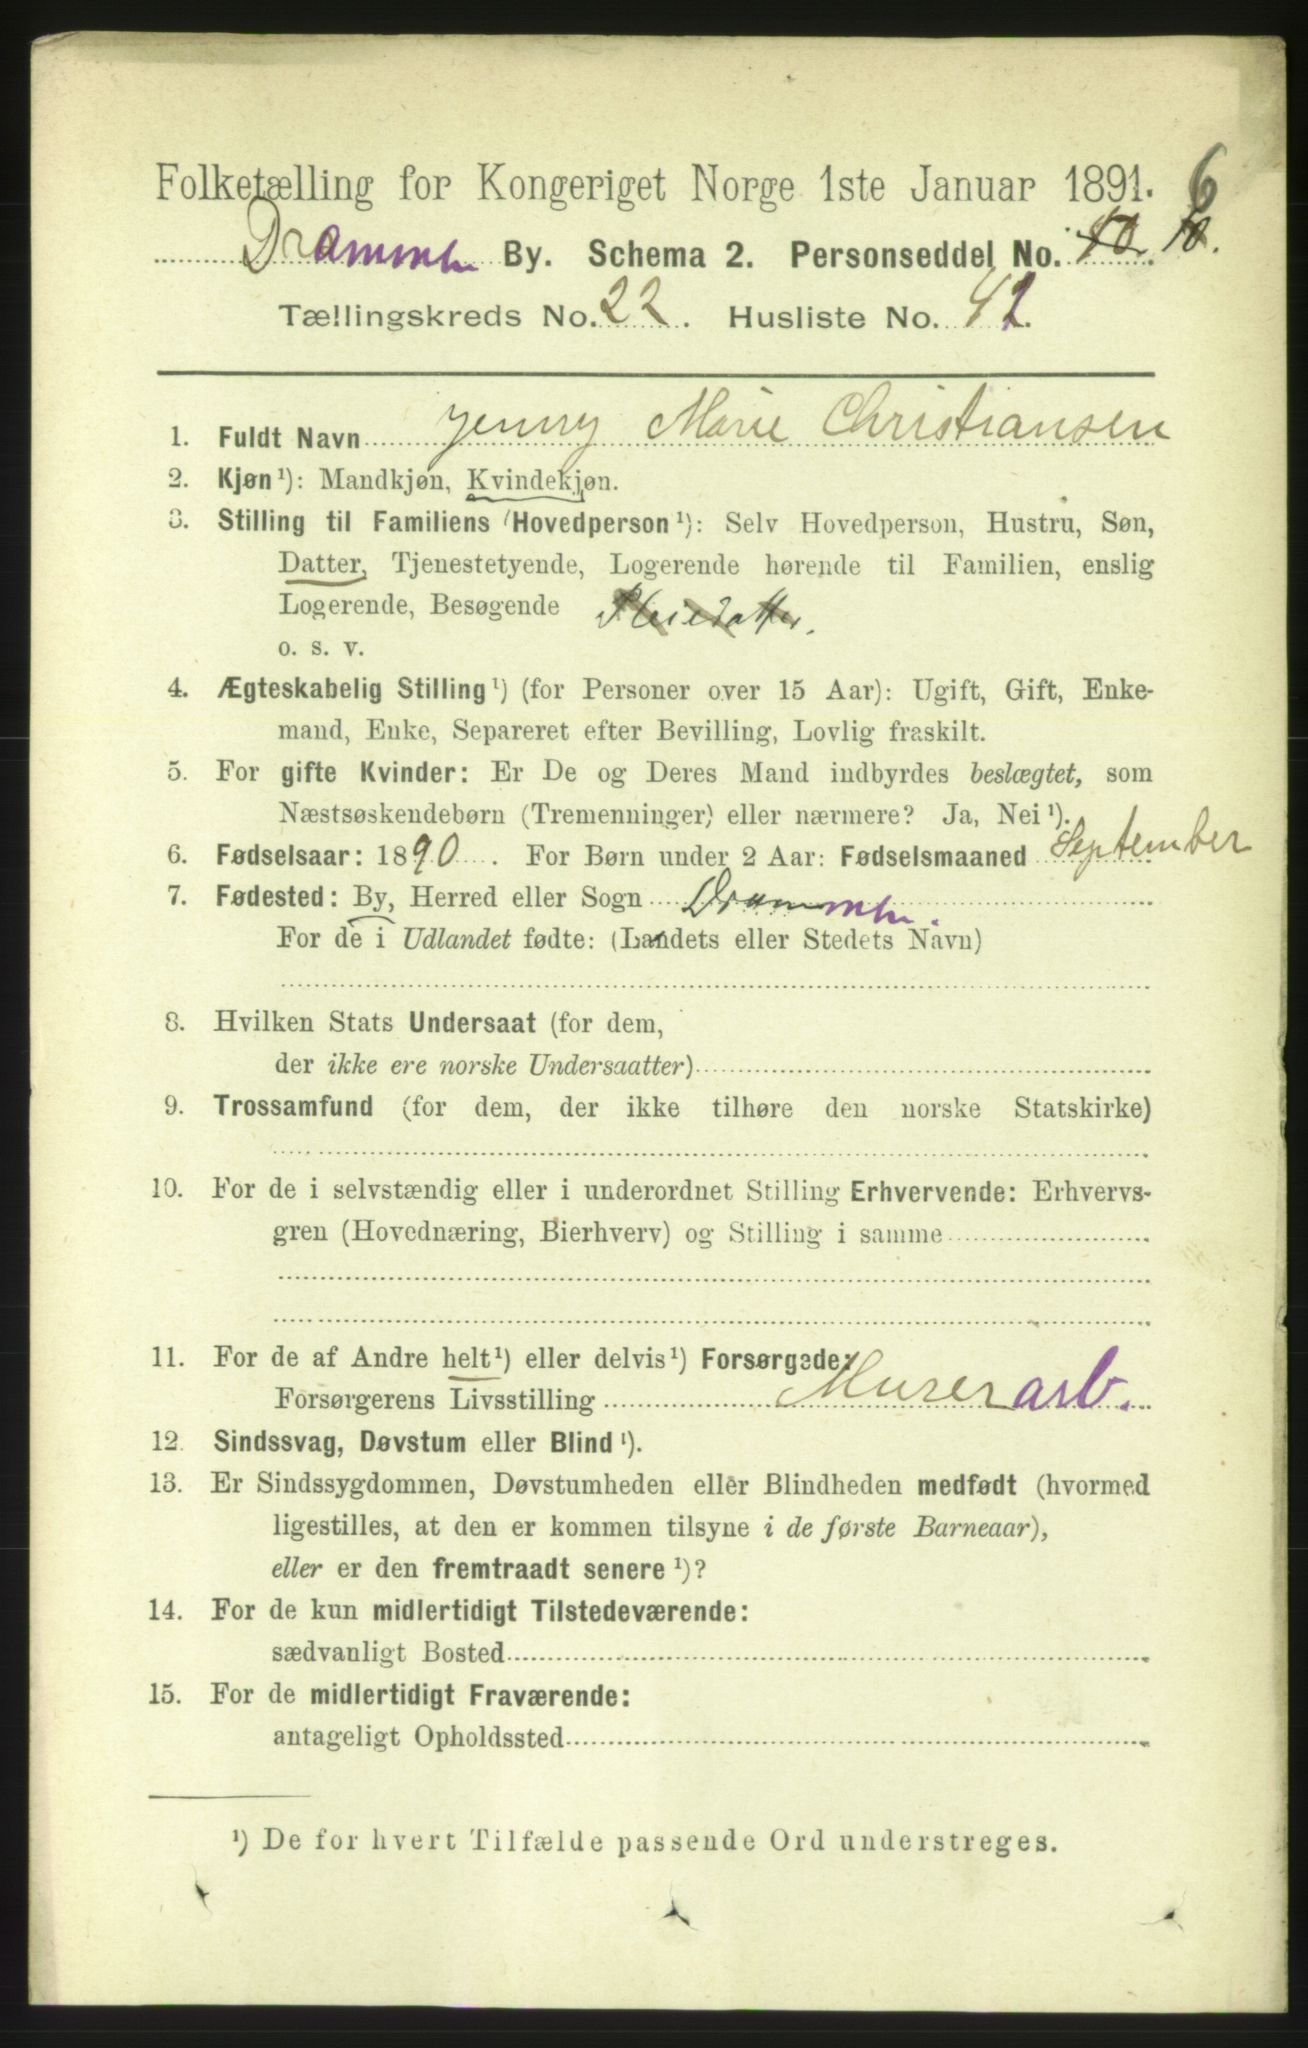 Folketælling for Kongeriget Norge 1ste Januar 1891. 6
Drammen By. Schema 2. Personseddel No. 10.
Tællingskreds No. 22. Husliste No. 42.
1. Fuldt Navn Jenny Marie Christiansen
2. Kjøn¹): Mandkjøn, Kvindekjøn.
3. Stilling til Familiens Hovedperson¹): Selv Hovedperson, Hustru, Søn,
Datter, Tjenestetyende, Logerende hørende til Familien, enslig
Logerende, Besøgende Pleiedatter.
o. s. v.
4. Ægteskabelig Stilling¹) (for Personer over 15 Aar): Ugift, Gift, Enke-
mand, Enke, Separeret efter Bevilling, Lovlig fraskilt.
5. For gifte Kvinder: Er De og Deres Mand indbyrdes beslægtet, som
Næstsøskendebørn (Tremenninger) eller nærmere? Ja, Nei¹).
6. Fødselsaar: 1890. For Børn under 2 Aar: Fødselsmaaned September
7. Fødested: By, Herred eller Sogn Drammen.
For de i Udlandet fødte: (Landets eller Stedets Navn)
8. Hvilken Stats Undersaat (for dem,
der ikke ere norske Undersaatter)
9. Trossamfund (for dem, der ikke tilhøre den norske Statskirke)
10. For de i selvstændig eller i underordnet Stilling Erhvervende: Erhvervs-
gren (Hovednæring, Bierhverv) og Stilling i samme
11. For de af Andre helt¹) eller delvis¹) Forsørgede:
Forsørgerens Livsstilling Murerarb.
12. Sindssvag, Døvstum eller Blind¹).
13. Er Sindssygdommen, Døvstumheden eller Blindheden medfødt (hvormed
ligestilles, at den er kommen tilsyne i de første Barneaar),
eller er den fremtraadt senere¹)?
14. For de kun midlertidigt Tilstedeværende:
sædvanligt Bosted
15. For de midlertidigt Fraværende:
antageligt Opholdssted
¹) De for hvert Tilfælde passende Ord understreges.